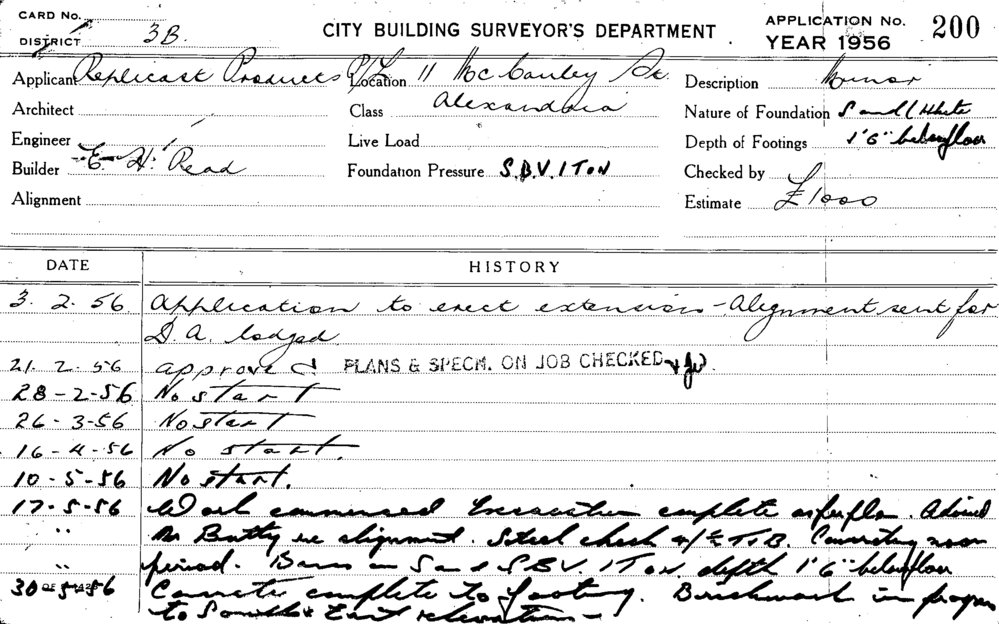 CARD No.
DISTRICT 3B.
CITY BUILDING SURVEYOR'S DEPARTMENT
APPLICATION No. 200
YEAR 1956
Applicant Replicast Products P/L
Location 11 McCauley St.
Alexandria
Description Minor
Architect
Class
Nature of Foundation Sand (White
Engineer
Live Load
Depth of Footings 1'6" below floor
Builder E. H. Read
Foundation Pressure S.B.V. 1 TON
Checked by
Alignment
Estimate £1000
DATE HISTORY
3. 2. 56 Application to erect extension - Alignment sent for
D. A. lodged
21. 2. 56 approved PLANS & SPECN. ON JOB CHECKED
28-2-56 No start
26-3-56 No start
16-4-56 No start.
10-5-56 No start.
17-5-56 Work commenced Excavation complete as per plan. Advised
" Mr Batty re alignment. Steel check Concreting
" period. Base on Sand S.B.V. 1 TON. depth 1'6" below floor
30-5-56 Concrete complete to footing. Brickwork in progress
to South & East elevations -